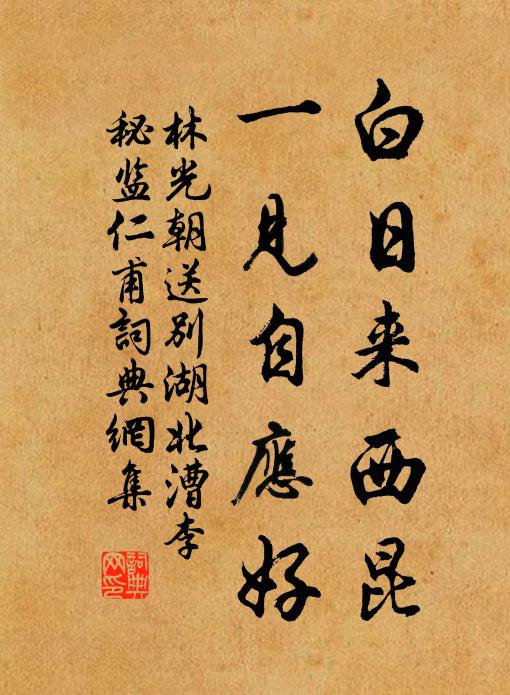 白日来西昆
一見自應好
林光朝送别湖北漕李
秘监仁甫詞典網集
詞典
网印